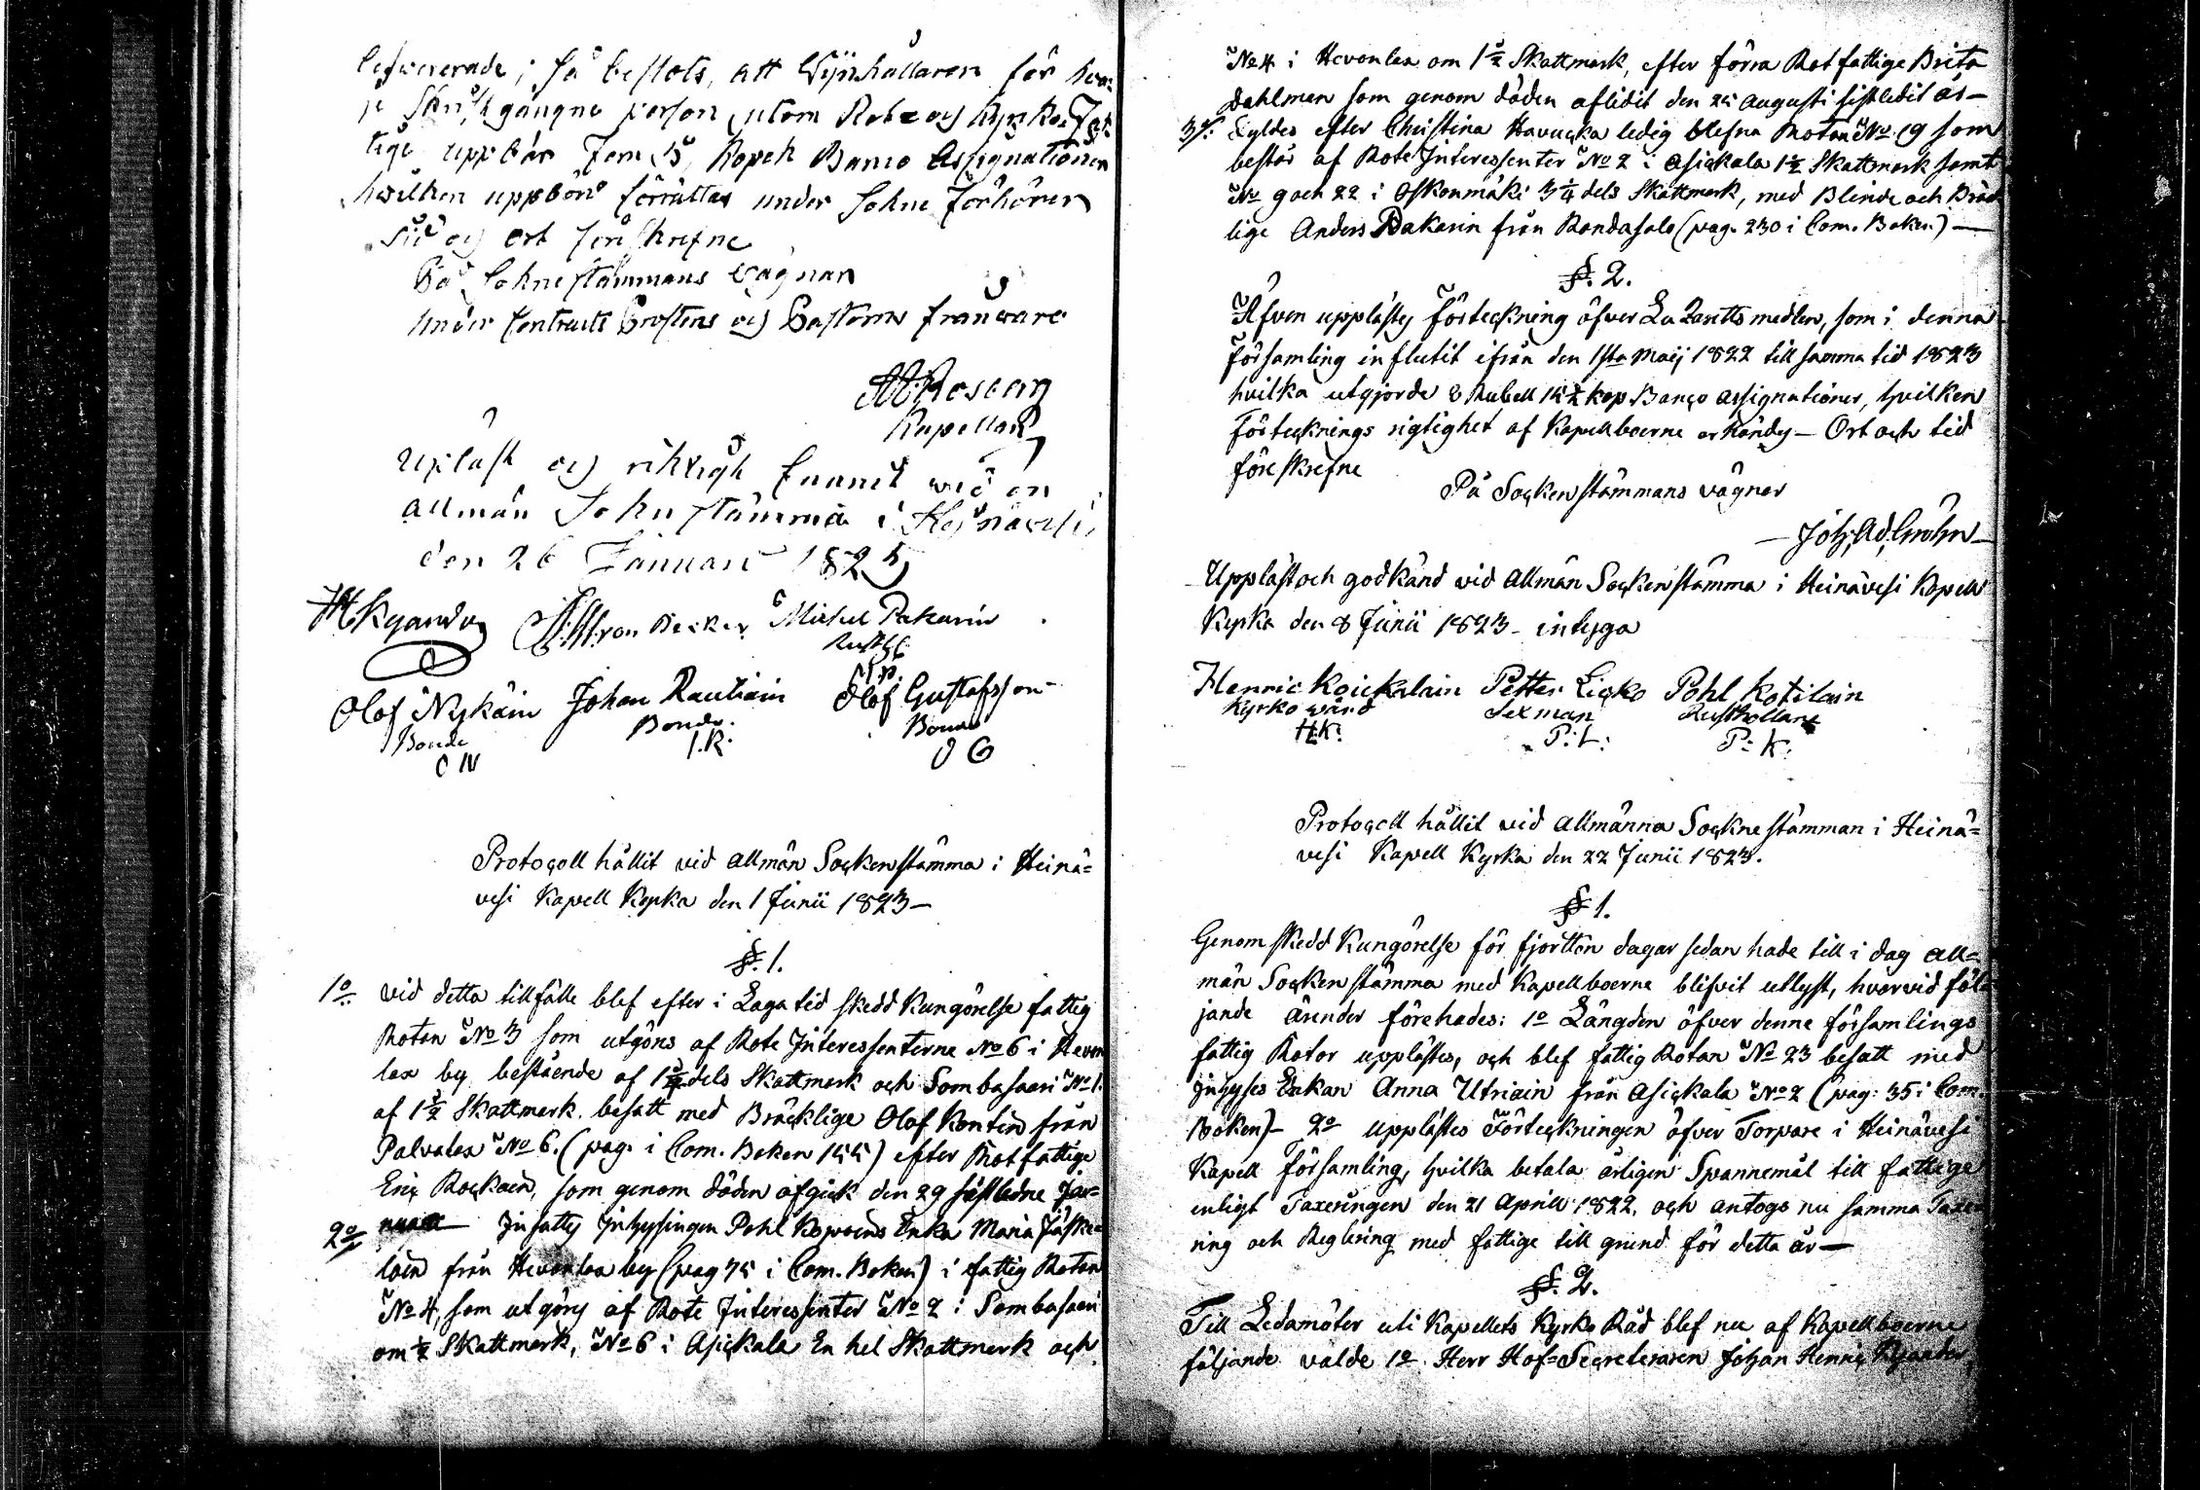 lefwererade; så beslöts, att Wijnhållaren för hvar
je Skriftgångne person utom Rote och Kyrko Fat-
tige uppbär Fem 5 Kopek Banco Assignationer
hwilken uppbörd förrättas under Sokne Förhören
Tid och ort föreskrefne
På Sokne stämmans vägnar
under Contracts Prostens och Pastorns franwaro
Roseen
Kapellan
Uplast och riktigh funnit wid en
allmän Sokn stämma i Heinävesi
den 26 Januari 1825
JH Kyander J. M. von Becker Michel Pakarin
Rusth
M.P.
Olof Nykäin Johan Rautiain Olof Gustafsson
Bonde Bonde. Bonde
O N I.R. O G
Protocoll hållit vid allmän Sockenstämma i Heinä=
vesi Kapell Kyrka den 1 Junii 1823 –
§. 1.
1o vid detta tillfälle blef efter i Laga tid skedd Kungörelse fattig
Rotan No 3 som utgöres af Rote Interessenterne No 6 i Hevon
lax by bestående af 1 3/4 dels Skattmark och Sombasaari No 1.
af 1 1/2 Skattmark. besatt med Bräcklige Olof Kontin från
Palvalax No 6. (pag. i Com. Boken 155) efter Rotfattige
Eric Kockoin, som genom döden afgick den 29 sistledne Jan=
nuarii
2o Insattes Inhysingen Pohl Kopoins Enka Maria Jäske=
läin från Hevonlax by (pag 75 i Com. Boken) i fattig Rotan
No 4, som utgöres af Rote Interessenter No 2 i Sombasaari
om 1/2 Skattmark, No 6 i Asickala En hel Skattmark och
No 4 i Hevonlax om 1 1/2 Skattmark, efter förra Rotfattige Brita
Dahlman som genom döden aflidit den 25 Augusti sistledit år –
3o: Fyldes efter Christina Havucka ledig blefna Rotan No 19 som
består af Rote Interessenter No 2 i Asickala 1 1/2 Skattmark samt
No 9 och 22 i Oskonmäki 3 1/4 dels Skattmark, med Blinde och Bräck
lige Anders Pakarin från Randasalo (pag. 230 i Com. Boken) —
§. 2.
Äfven upplästes Förteckning öfver La Zaretts medlen, som i denna
Församling influtit ifrån den 1sta Maij 1822 till samma tid 1823
hvilka utgjorde 8 Rubell 15 1/2 kop Banco assignationer, hvilken
Förtecknings rigtighet af Kapellboerne erkändes – Ort och tid
föreskrefne
På Sockenstämmans vägnar
— Joh: Ad: Crohn —
Uppläst och godkänd vid Allmän Sockenstämma i Heinävesi Kapell
Kyrka den 8 Junii 1823 – intyga
Henric Koickalain Petter Licko Pohl Kotilain
Kyrko wärd Sexman Rusthollare
H.K: P: L: P: K:
Protocoll hållit vid allmänna Sockne stämman i Heinä=
vesi Kapell Kyrka den 22 Junii 1823.
§ 1.
Genom skedd Kungörelse för fjortton dagar sedan hade till i dag all=
män Sockenstämma med Kapellboerne blifvit utlyst, hvarvid föl=
jande ärender förehades: 1o Längden öfver denne församlings
fattig Rotor upplästes, och blef fattig Rotan No 23 besatt med
Inhyses Enkan Anna Utriain från Asickala No 2 (pag: 35 i Com.
Boken) – 2o Upplästes Förteckningen öfver Torpare i Heinävesi
Kapell församling, hvilka betala årligen Spannemål till fattige
enligt Taxeringen den 21 April 1822, och antogs nu samma Taxe-
ring och Reglering med fattige till grund för detta år —
§. 2.
Till Ledamöter uti Kapellets Kyrko Råd blef nu af Kapellboerne
följande valde 1o Herr Hof=Secreteraren Johan Henric Kyander,